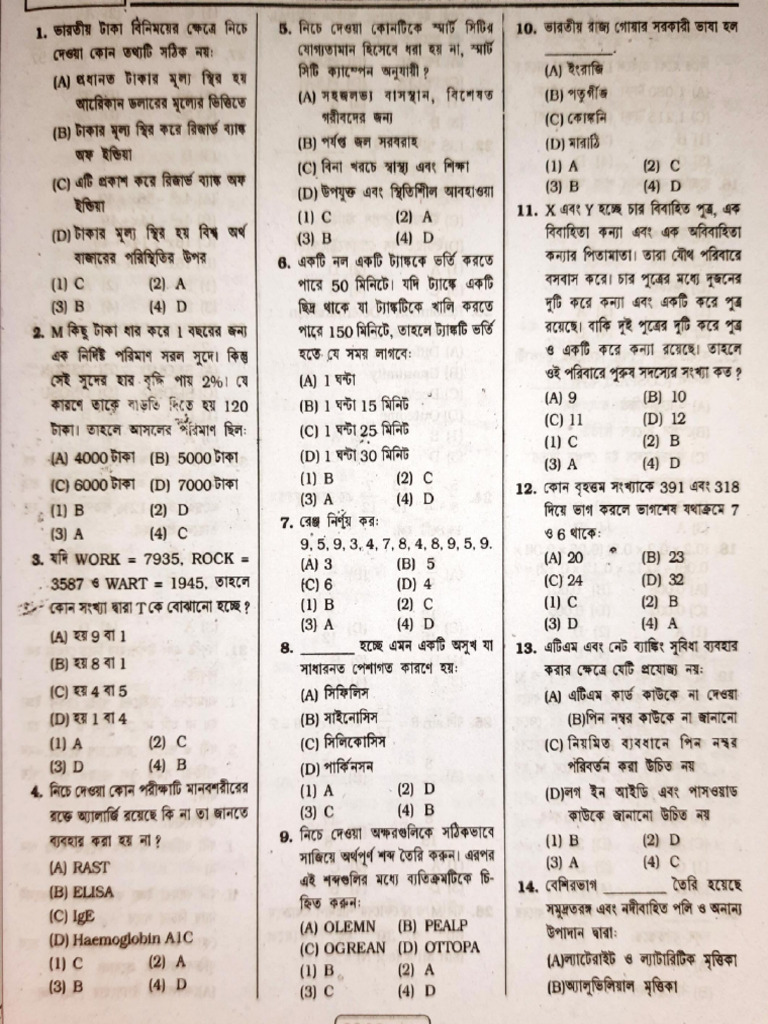 1. ভারতীয় টাকা বিনিময়ের ক্ষেত্রে নিচে
দেওয়া কোন তথ্যটি সঠিক নয়ঃ
(A) প্রধানত টাকার মূল্য স্থির হয়
আমেরিকান ডলারের মূল্যের ভিত্তিতে
(B) টাকার মূল্য স্থির করে রিজার্ভ ব্যাঙ্ক
অফ ইন্ডিয়া
(C) এটি প্রকাশ করে রিজার্ভ ব্যাঙ্ক অফ
ইন্ডিয়া
(D) টাকার মূল্য স্থির হয় বিশ্ব অর্থ
বাজারের পরিস্থিতির উপর
(1) C (2) A
(3) B (4) D
2. M কিছু টাকা ধার করে 1 বছরের জন্য
এক নির্দিষ্ট পরিমাণ সরল সুদে। কিন্তু
সেই সুদের হার বৃদ্ধি পায় 2%। যে
কারণে তাকে বাড়তি দিতে হয় 120
টাকা। তাহলে আসলের পরিমাণ ছিলঃ
(A) 4000 টাকা (B) 5000 টাকা
(C) 6000 টাকা (D) 7000 টাকা
(1) B (2) D
(3) A (4) C
3. যদি WORK = 7935, ROCK =
3587 ও WART = 1945, তাহলে
কোন সংখ্যা দ্বারা T কে বোঝানো হচ্ছে ?
(A) হয় 9 বা 1
(B) হয় 8 বা 1
(C) হয় 4 বা 5
(D) হয় 1 বা 4
(1) A (2) C
(3) D (4) B
4. নিচে দেওয়া কোন পরীক্ষাটি মানবশরীরের
রক্তে অ্যালার্জি রয়েছে কি না তা জানতে
ব্যবহার করা হয় না ?
(A) RAST
(B) ELISA
(C) IgE
(D) Haemoglobin A1C
(1) C (2) A
(3) B (4) D
5. নিচে দেওয়া কোনটিকে স্মার্ট সিটির
যোগ্যতামান হিসেবে ধরা হয় না, স্মার্ট
সিটি ক্যাম্পেন অনুযায়ী ?
(A) সহজলভ্য বাসস্থান, বিশেষত
গরীবদের জন্য
(B) পর্যপ্ত জল সরবরাহ
(C) বিনা খরচে স্বাস্থ্য এবং শিক্ষা
(D) উপযুক্ত এবং স্থিতিশীল আবহাওয়া
(1) C (2) A
(3) B (4) D
6. একটি নল একটি ট্যাঙ্ককে ভর্তি করতে
পারে 50 মিনিটে। যদি ট্যাঙ্কে একটি
ছিদ্র থাকে যা ট্যাঙ্কটিকে খালি করতে
পারে 150 মিনিটে, তাহলে ট্যাঙ্কটি ভর্তি
হতে যে সময় লাগবেঃ
(A) 1 ঘন্টা
(B) 1 ঘন্টা 15 মিনিট
(C) 1 ঘন্টা 25 মিনিট
(D) 1 ঘন্টা 30 মিনিট
(1) B (2) C
(3) A (4) D
7. রেঞ্জ নির্ণয় করঃ
9, 5, 9, 3, 4, 7, 8, 4, 8, 9, 5, 9.
(A) 3 (B) 5
(C) 6 (D) 4
(1) B (2) C
(3) A (4) D
8. ________ হচ্ছে এমন একটি অসুখ যা
সাধারনত পেশাগত কারণে হয়ঃ
(A) সিফিলিস
(B) সাইনোসিস
(C) সিলিকোসিস
(D) পার্কিনসন
(1) A (2) D
(3) C (4) B
9. নিচে দেওয়া অক্ষরগুলিকে সঠিকভাবে
সাজিয়ে অর্থপূর্ণ শব্দ তৈরি করুন। এরপর
এই শব্দগুলির মধ্যে ব্যতিক্রমটিকে চি-
হ্নিত করুনঃ
(A) OLEMN (B) PEALP
(C) OGREAN (D) OTTOPA
(1) B (2) A
(3) C (4) D
10. ভারতীয় রাজ্য গোয়ার সরকারী ভাষা হল
________.
(A) ইংরাজি
(B) পর্তুগীজ
(C) কোঙ্কনি
(D) মারাঠি
(1) A (2) C
(3) B (4) D
11. X এবং Y হচ্ছে চার বিবাহিত পুত্র, এক
বিবাহিতা কন্যা এবং এক অবিবাহিতা
কন্যার পিতামাতা। তারা যৌথ পরিবারে
বসবাস করে। চার পুত্রের মধ্যে দুজনের
দুটি করে কন্যা এবং একটি করে পুত্র
রয়েছে। বাকি দুই পুত্রের দুটি করে পুত্র
ও একটি করে কন্যা রয়েছে। তাহলে
ওই পরিবারে পুরুষ সদস্যের সংখ্যা কত ?
(A) 9 (B) 10
(C) 11 (D) 12
(1) C (2) B
(3) A (4) D
12. কোন বৃহত্তম সংখ্যাকে 391 এবং 318
দিয়ে ভাগ করলে ভাগশেষ যথাক্রমে 7
ও 6 থাকেঃ
(A) 20 (B) 23
(C) 24 (D) 32
(1) C (2) B
(3) D (4) A
13. এটিএম এবং নেট ব্যাঙ্কিং সুবিধা ব্যবহার
করার ক্ষেত্রে যেটি প্রযোজ্য নয়ঃ
(A) এটিএম কার্ড কাউকে না দেওয়া
(B)পিন নম্বর কাউকে না জানানো
(C) নিয়মিত ব্যবধানে পিন নম্বর
পরিবর্তন করা উচিত নয়
(D)লগ ইন আইডি এবং পাসওয়াড
কাউকে জানানো উচিত নয়
(1) B (2) D
(3) A (4) C
14. বেশিরভাগ ________ তৈরি হয়েছে
সমুদ্রতরঙ্গ এবং নদীবাহিত পলি ও অন্যান্য
উপাদান দ্বারাঃ
(A)ল্যাটেরাইট ও ল্যাটারিটিক মৃত্তিকা
(B)অ্যালুভিলিয়াল মৃত্তিকা